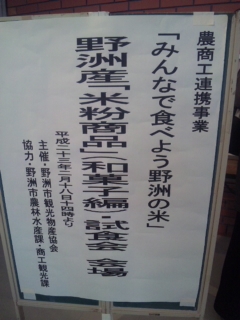 農商工連携事業
「みんなで食べよう野洲の米」
野洲産「米粉商品」(和菓子編)・試食会 会場
平成二十三年二月十八日十四時より
主催・野洲市観光物産協会
協力・野洲市農林水産課・商工観光課